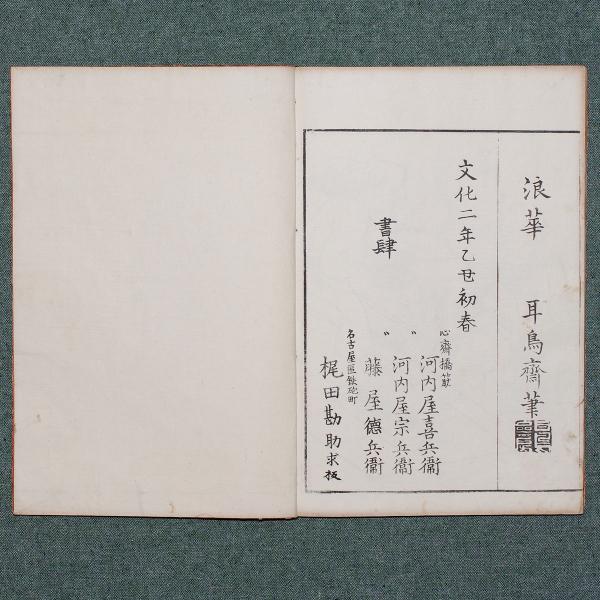 浪華 耳鳥齋筆
文化二年乙丑初春
書肆
心齋橋筋
河内屋喜兵衞
〃 河内屋宗兵衞
〃 藤屋德兵衞
名古屋區鉄砲町
梶田勘助求板